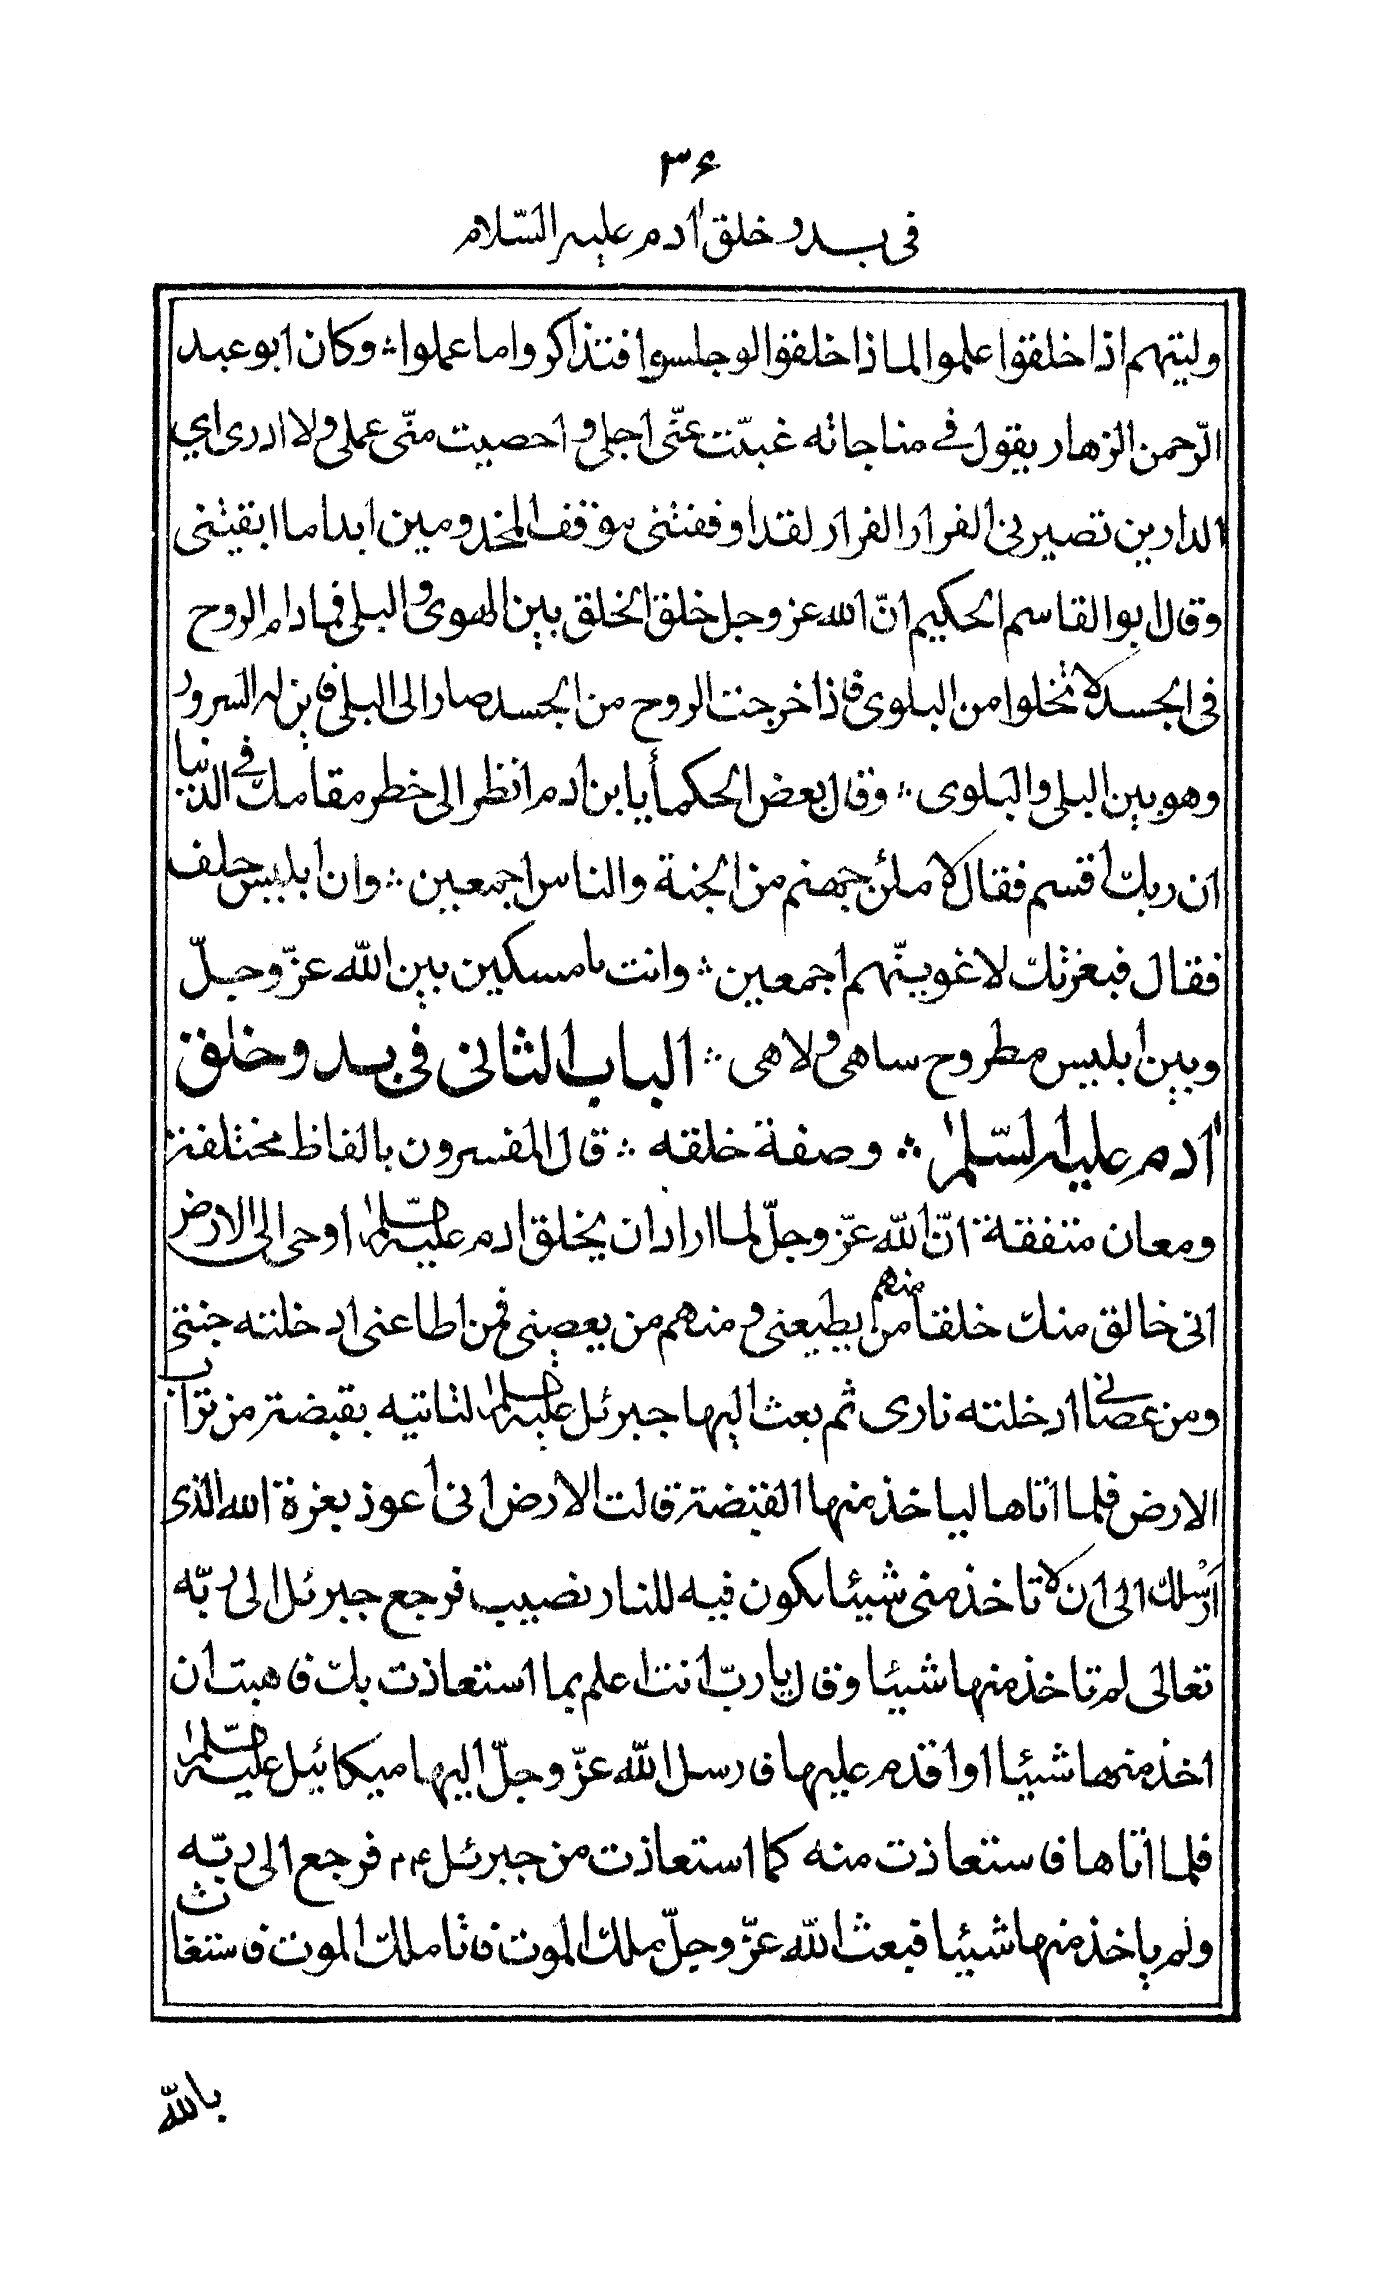 ۳۶
في بدو خلق آدم عليه السّلام
وليتهم اذا خلقوا علموا لماذا خلقوا لو جلسوا فتذاكروا ما عملوا ؞ وكان ابو عبد
الرّحمن الزهار يقول في مناجاته غيبّت عنّى اجلى و احصيت منّى عملى ولا ادرى اي
الدارين تصيرنى الفرار الفرار لقد اوقفتنى موقف المخدومين ابدا ما ابقيتنى
وقال ابو القاسم الحكيم انّ الله عز وجل خلق الخلق بين الهوى والبلى فما دام الروح
فى الجسد لا تخلوا من البلوى فاذا خرجت الروح من الجسد صار الى البلى فاين له السرور
وهو بين البلى والبلوى ؞ وقال بعض الحكمأ يا بن ادم انظر الى خطر مقامك في الدنيا
ان ربك اقسم فقال لاملئن جهنم من الجنة والناس اجمعين ؞ وان ابليس حلف
فقال فبعزتك لاغوينّهم اجمعين ؞ وانت يا مسكين بين الله عزّ وجلّ
وبين ابليس مطروح ساهى ولاهى ؞ الباب الثانى فى بدو خلق
آدم عليه السّلم ؞ وصفة خلقه ؞ قال المفسرون بالفاظ مختلفة
ومعان متفقة انّ الله عزّ وجلّ لما اراد ان يخلق ادم عليه السّلم اوحى الى الارض
انى خالق منك خلقا منهم من يطيعنى و منهم من يعصينى فمن اطاعنى ادخلته جنتى
ومن عصانى ادخلته نارى ثم بعث اليها جبرئل عليه السلم لتاتيه بقبضة من تراب
الارض فلما اتاها لياخذ منها القبضة قالت الارض انى أعوذ بعزة الله الذى
ارسلك الى ان لا تاخذ منى شيئا يكون فيه للنار نصيب فرجع جبرئل الى ربّه
تعالى لم تاخذ منها شيئا وقال يا ربّ انت اعلم بما استعاذت بك فاهبت ان
اخذ منها شيئا او اقدم عليها فارسل الله عزّ وجلّ اليها ميكائيل عليه السّلم
فلما اتاها فاستعاذت منه كما استعاذت من جبرئل ع م فرجع الى ربّه
ولم ياخذ منها شيئا فبعث الله عزّ وجلّ ملك الموت فاتا ملك الموت فاستغاث
بالله